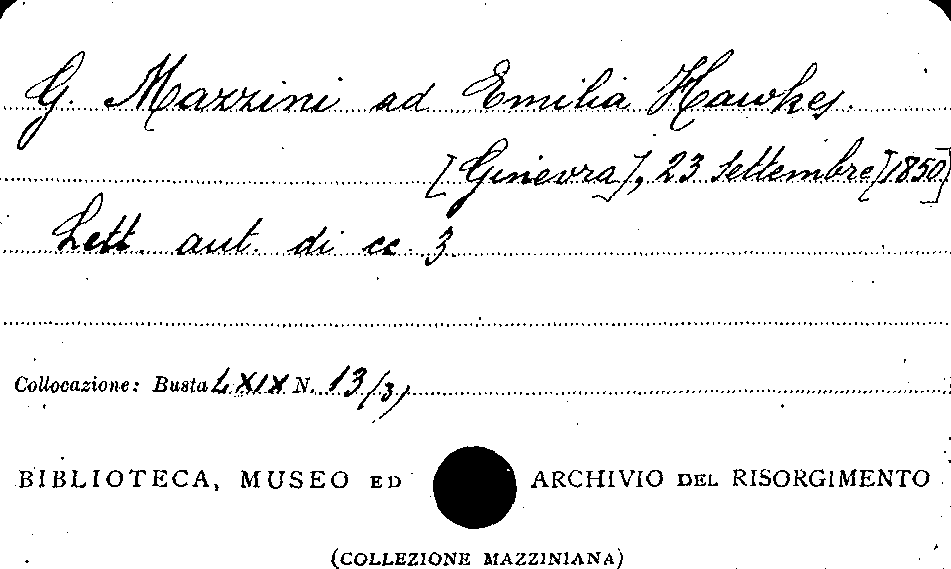 G. Mazzini ad Emilia Hawkes.
[Ginevra], 23 settembre [1850]
Lett. aut. di cc. 3.
Collocazione: Busta LXIX N. 13/3)
BIBLIOTECA, MUSEO ED ARCHIVIO DEL RISORGIMENTO
(COLLEZIONE MAZZINIANA)